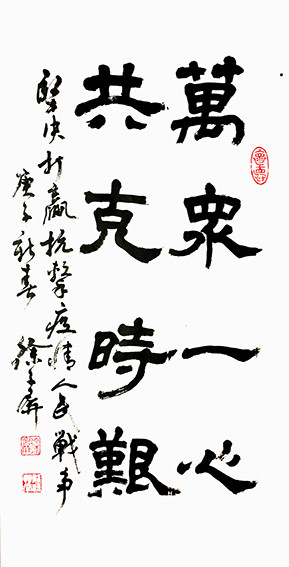 萬眾一心
共克時艱
堅决打贏抗擊疫情人民戰争
庚子新春